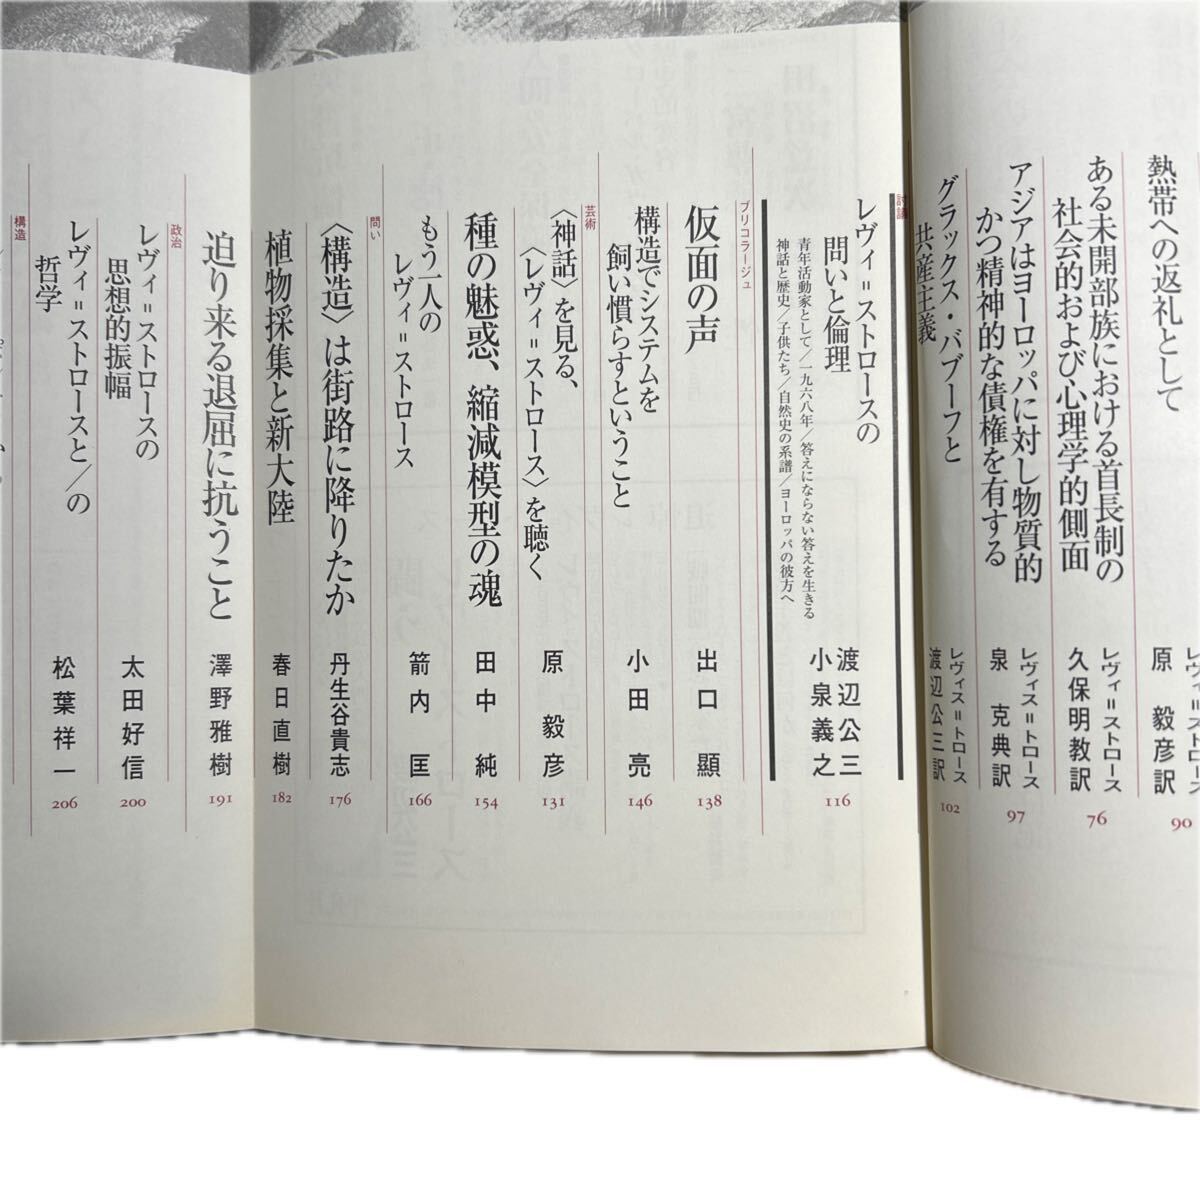 熱帯への返礼として
原 毅彦訳
90
ある未開部族における首長制の
社会的および心理学的側面
レヴィ＝ストロース
久保明教訳
76
アジアはヨーロッパに対し物質的
かつ精神的な債権を有する
レヴィス＝トロース
泉 克典訳
97
グラックス・バブーフと
共産主義
レヴィス＝トロース
渡辺公三訳
102
討議
レヴィ＝ストロースの
問いと倫理
青年活動家として／一九六八年／答えにならない答えを生きる
神話と歴史／子供たち／自然史の系譜／ヨーロッパの彼方へ
渡辺公三
小泉義之
116
ブリコラージュ
仮面の声
出口 顯
138
構造でシステムを
飼い慣らすということ
小田 亮
146
芸術
〈神話〉を見る、
〈レヴィ＝ストロース〉を聴く
原 毅彦
131
種の魅惑、縮減模型の魂
田中 純
154
もう一人の
レヴィ＝ストロース
箭内 匡
166
問い
〈構造〉は街路に降りたか
丹生谷貴志
176
植物採集と新大陸
春日直樹
182
迫り来る退屈に抗うこと
澤野雅樹
191
政治
レヴィ＝ストロースの
思想的振幅
太田好信
200
レヴィ＝ストロースと／の
哲学
松葉祥一
206
構造